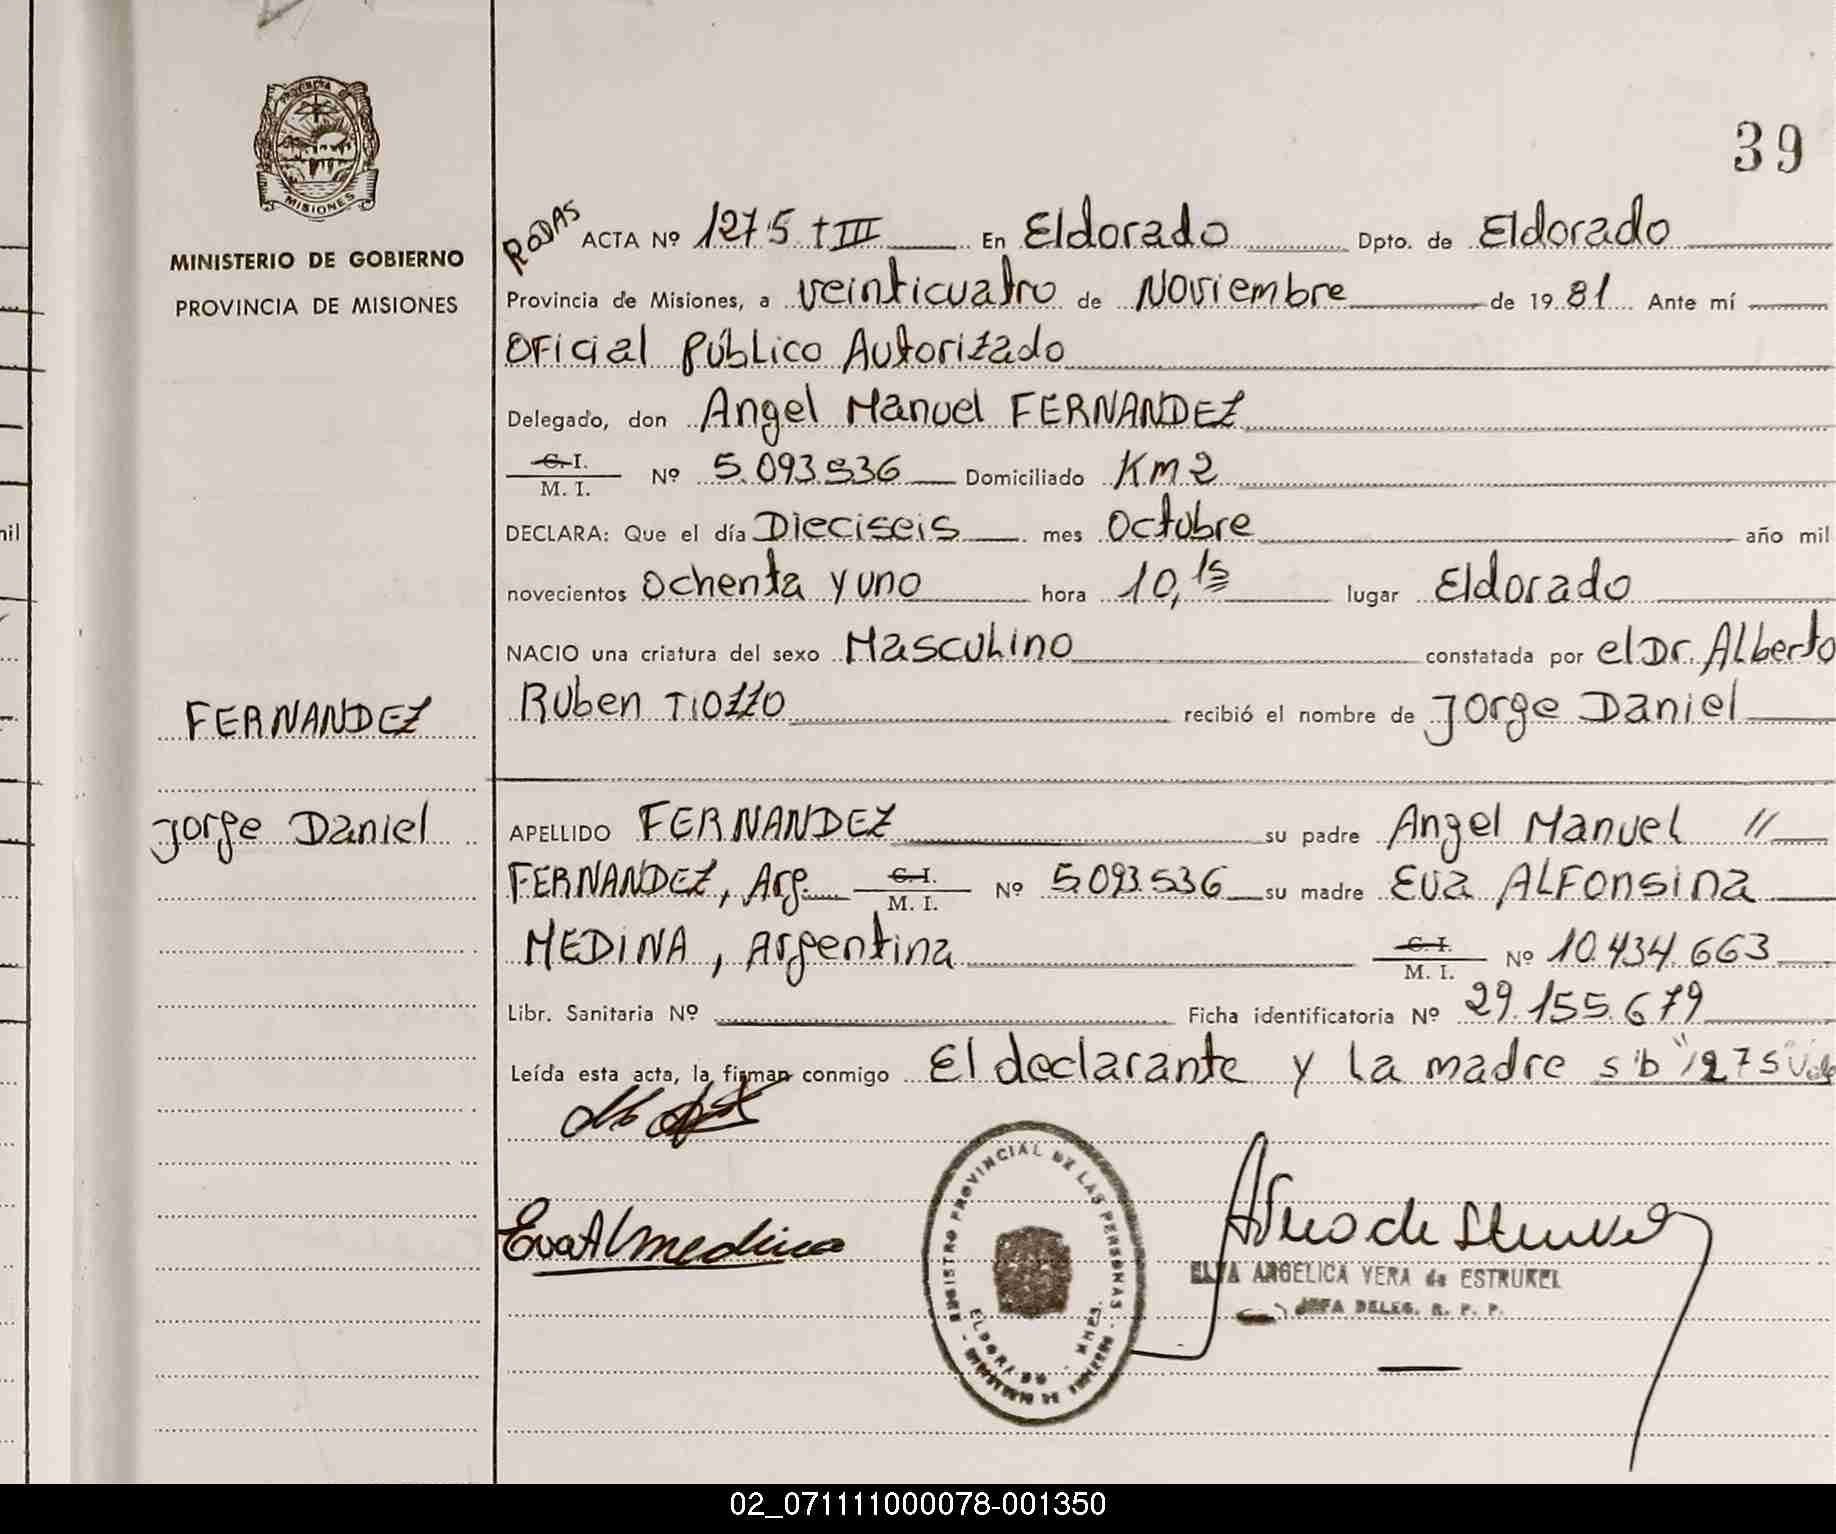 PROVINCIA DE
MISIONES
MINISTERIO DE GOBIERNO
PROVINCIA DE MISIONES
FERNANDEZ
Jorge Daniel
39
RODAS ACTA Nº 1275 t III En Eldorado Dpto. de Eldorado
Provincia de Misiones, a veinticuatro de Noviembre de 19 81 Ante mí
Oficial Público Autorizado
Delegado, don Angel Manuel FERNANDEZ
C. I.
M. I. Nº 5.093.536 Domiciliado Km 2
DECLARA: Que el día Dieciseis mes Octubre año mil
novecientos Ochenta y uno hora 10,15 lugar Eldorado
NACIO una criatura del sexo Masculino constatada por el Dr. Alberto
Ruben Tiozzo recibió el nombre de Jorge Daniel
APELLIDO FERNANDEZ su padre Angel Manuel //
FERNANDEZ, Arg. C. I. M. I. Nº 5.093.536 su madre Eva ALFonsina
MEDINA, Argentina C. I. M. I. Nº 10.434.663
Libr. Sanitaria Nº Ficha identificatoria Nº 29.155.679
Leída esta acta, la firman conmigo El declarante y la madre s/b "1275" Vale
Eva Al medina
REGISTRO PROVINCIAL DE LAS PERSONAS
ELDORADO - MNES.
ELVA ANGELICA VERA de ESTRUKEL
JEFA DELEG. R. P. P.
02_071111000078-001350